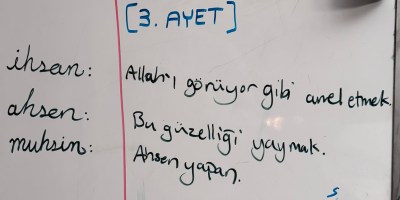 [3. AYET]
ihsan: Allah'ı görüyor gibi amel etmek.
ahsen: Bu güzelliği yaymak.
muhsin: Ahsen yapan.